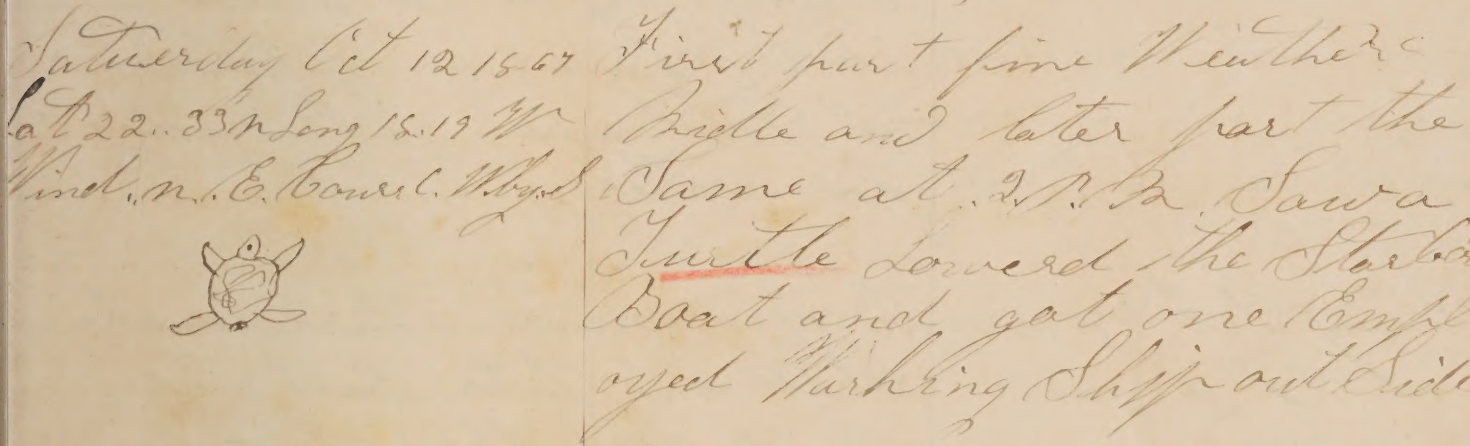 Saturday Oct 12 1867
Lat 22.. 33 N Long 18.19 W
Wind.. N.. E. Course. W.by.S
First part fine Weather
Midle and later part the
Same at .2.P.M. Saw a
Turtle Lowered the Starbo
Boat and got one Empl
oyed Washing Ship out Side